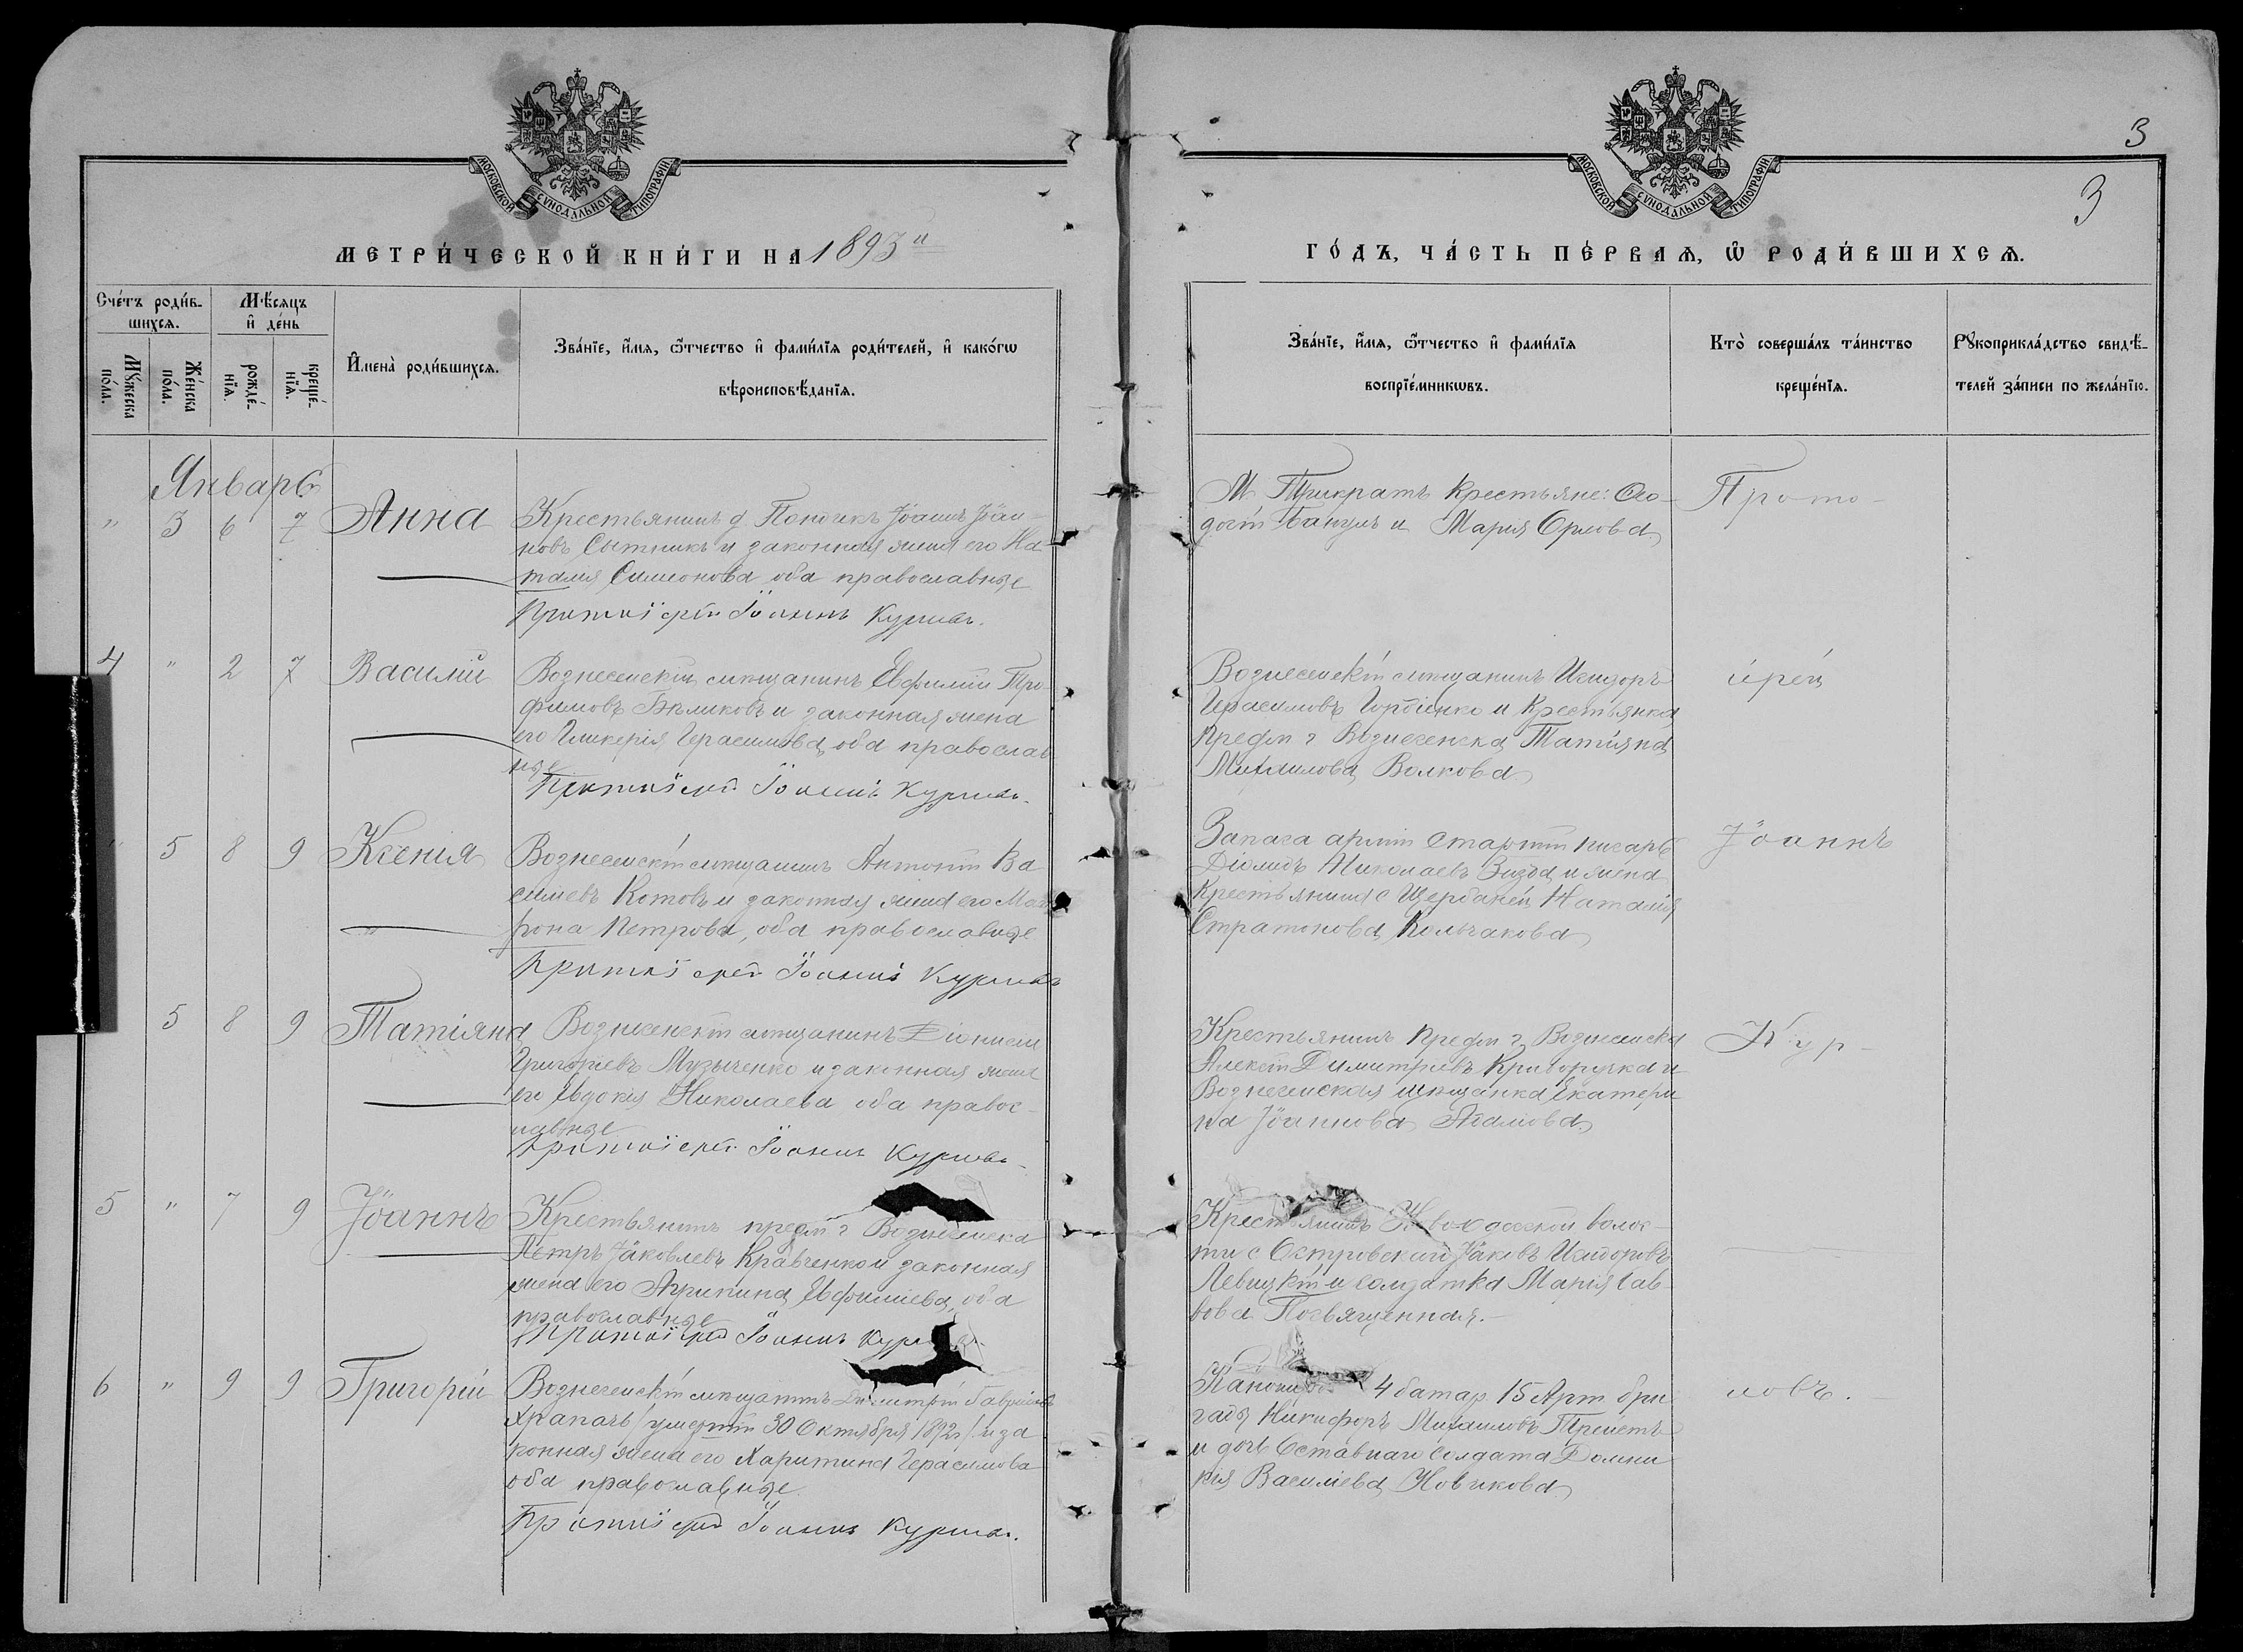 3
МОСКОВСКОЙ СУНОДАЛЬНОЙ ТИПОГРАФІИ
МОСКОВСКОЙ СУНОДАЛЬНОЙ ТИПОГРАФІИ
3
МЕТРИ́ЧЕСКОЙ КНИ́ГИ НА 1893 й
ГО́ДЪ, ЧА́СТЬ ПЕ́РВАѦ, Ѡ҆ РОДИ́ВШИХСѦ.
Сче́тъ роди́в-
шихсѧ.
Мꙋ́жеска по́ла.
Же́нска по́ла.
Мѣ́сѧцъ
и҆ де́нь
рожде́-
нїѧ.
креще́-
нїѧ.
И҆мена̀ роди́вшихсѧ.
Зва́нїе, и҆́мѧ, ѻ҆́тчество и҆ фами́лїѧ роди́телей, и҆ како́гѡ
вѣроисповѣ́данїѧ.
Зва́нїе, и҆́мѧ, ѻ҆́тчество и҆ фами́лїѧ
воспрїе́мникѡвъ.
Кто̀ соверша́лъ та́инство
креще́нїѧ.
Рꙋкоприкла́дство свидѣ́-
телей за́писи по жела́нїю.
Январь
" 3 6 7 Анна
Крестьянинъ Іоаннъ Іоан-
новъ Сытникъ и законная жена его На-
талія Симеонова оба православные
Протоіерей Іоаннъ Курловъ.
М. Трикратъ Крестьяне: Ѳео-
досій и Марія Орлова
Прото-
4 " 2 7 Василій
Вознесенскій мѣщанинъ Евфимій Тро-
фимовъ Бѣликовъ и законная жена
его Гликерія Герасимова, оба православ
ные
Протоіерей Іоаннъ Курловъ.
Вознесенскій мѣщанинъ Исидоръ
Герасимовъ Горбенко и Крестьянка
предм г Вознесенска Татіяна
Михаилова Волкова
іерей
" 5 8 9 Ксенія
Вознесенскій мѣщанинъ Антоній Ва
силіевъ Котовъ и законная жена его Мат
рона Петрова, оба православные
Протоіерей Іоаннъ Курловъ
Запаса арміи Старшій писарь
Діомидъ Николаевъ и жена
Крестьянина с Щербаней Наталія
Стратонова Колчакова
Іоаннъ
5 8 9 Татіяна
Вознесенскій мѣщанинъ Діонисій
Григоріевъ Музыченко и законная жена
его Евдокія Николаева оба правос-
лавные
Протоіерей Іоаннъ Курловъ.
Крестьянинъ предм г Вознесенска
Алексій Димитріевъ Криворучка и
Вознесенская мѣщанка Екатери
на Іоаннова Агамова
Кур-
5 " 7 9 Іоаннъ
Крестьянинъ предм г Вознесенска
Петръ Іаковлевъ Кравченко и законная
жена его Агрипина Евфиміева, оба
православные
Протоіерей Іоаннъ
Крестьянинъ Новоодесской волос-
ти с Островской Іаковъ Исидоровъ
Левицкій и солдатка Марія Сав-
вова Посвященная.-
6 " 9 9 Григорій
Вознесенскій мѣщанинъ Димитрій Гавріиловъ
Храпачъ (умершій 30 Октября 1892 г) и за
конная жена его Харитина Герасимова
оба православные
Протоіерей Іоаннъ Курловъ.
4 батар. 15 Арт бри
гады Никифоръ Михаиловъ
и дочь Отставнаго Солдата Домни
кія Василіева Новикова
ловъ.